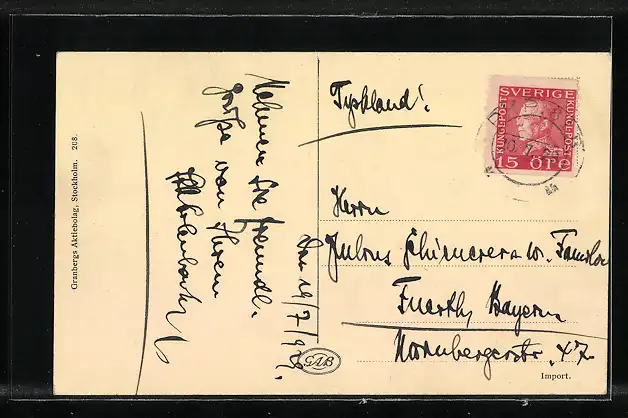 Granbergs Aktiebolag, Stockholm. 208.
Nehmen Sie freundl.
Grüße von Ihrem
19/7/
Tyskland!
SVERIGE
KUNGL·POST
KUNGL·POST
15 ÖRE
Herrn
Julius u. Familie
Fuerth, Bayern
Nornbergerstr. 47
GAB
Import.